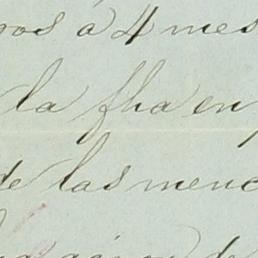 á 4 mes
la fha en
de las menc
de